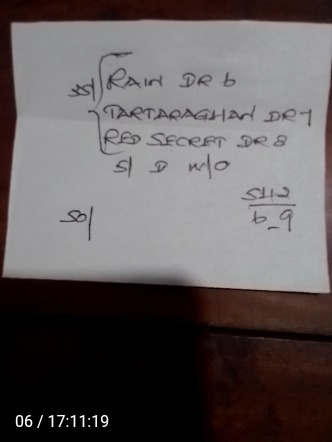 RAIN DR 6
35/ { TARTARAGHAN DR 7
RED SECRET DR 8
S/ D W/O
50/
SH2
6-9
06 / 17:11:19